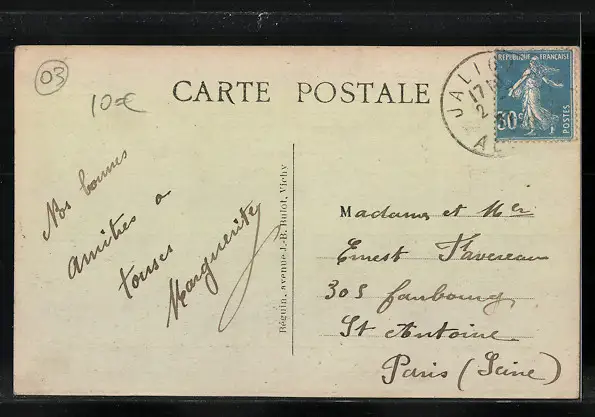 03
10€
CARTE POSTALE
JALIG
17
2
AL
REPUBLIQUE FRANÇAISE
30c
POSTES
Nos bonnes
amitiés a
touses
Marguerite
Béguin, avenue J.-B. Bulot, Vichy
Madame et Mer
Ernest Favereau
305 faubourg
St Antoine
Paris (Seine)